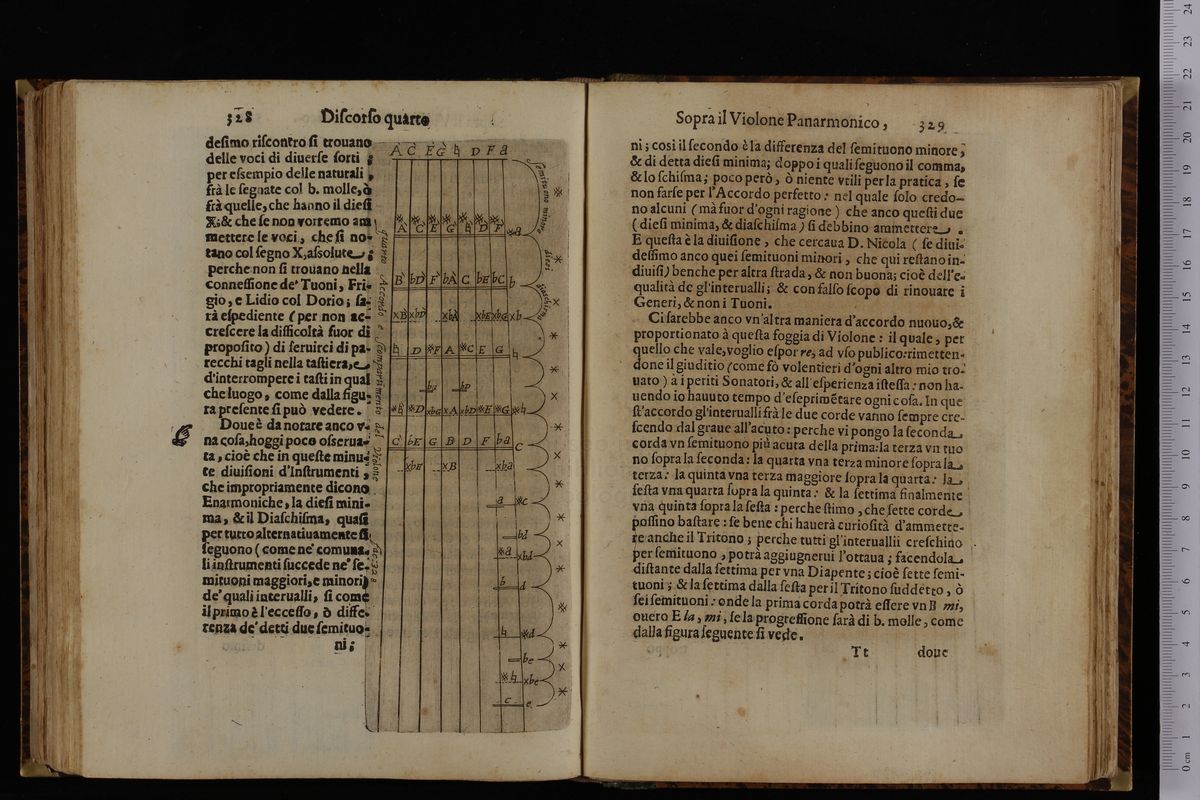 328 Diſcorſo quarto
deſimo riſcontro ſi trouano
delle voci di diuerſe ſorti ;
per eſsempio delle naturali ,
frà le ſegnate col b. molle, ò
frà quelle, che hanno il dieſi
X; & che ſe non vorremo am
mettere le voci, che ſi no-
tano col ſegno X, aſsolute ;
perche non ſi trouano nella
conneſſione de' Tuoni, Fri-
gio, e Lidio col Dorio; ſa-
rà eſpediente (per non ac-
creſcere la difficoltà fuor di
propoſito) di ſeruirci di pa-
recchi tagli nella taſtiera, e
d'interrompere i taſti in qual
che luogo, come dalla figu-
ra preſente ſi può vedere.
Doue è da notare anco v-
na coſa, hoggi poco oſserua-
ta, cioè che in queſte minu-
te diuiſioni d'Inſtrumenti ,
che impropriamente dicono
Enarmoniche, la dieſi mini-
ma, & il Diaſchiſma, quaſi
per tutto alternatiuamente ſi
ſeguono (come ne' comuna-
li inſtrumenti ſuccede ne' ſe-
mituoni maggiori, e minori)
de' quali interualli, ſi come
il primo è l'ecceſſo, ò diffe-
renza de' detti due ſemituo-
ni ;
A C E G ♮ D F a
ſemituono minore
A C E G ♮ D F
dieſi
B bD F bA C bE bC b
diaſchiſma
xB xbD xbA xbE xbG xb
♮ D F A C E G ♮
bD
B D xbG xA xbD E G ♮
C bE G B D F ba C
xbE xB xba
a c
bd
a xbd
b d
♮ d
be
♮ xbe
c e
quinto Accordo e Compartimento del Violone
fac. 328
Sopra il Violone Panarmonico , 329
ni ; così il ſecondo è la differenza del ſemituono minore ,
& di detta dieſi minima; doppo i quali ſeguono il comma,
& lo ſchiſma; poco però, ò niente vtili per la pratica , ſe
non farſe per l'Accordo perfetto : nel quale ſolo credo-
no alcuni (mà fuor d'ogni ragione) che anco queſti due
(dieſi minima, & diaſchiſma) ſi debbino ammettere .
E queſta è la diuiſione , che cercaua D. Nicola ( ſe diui-
deſſimo anco quei ſemituoni minori , che qui reſtano in-
diuiſi) benche per altra ſtrada, & non buona; cioè dell'e-
qualità de gl'interualli; & con falſo ſcopo di rinouare i
Generi, & non i Tuoni.
Ci ſarebbe anco vn'altra maniera d'accordo nuouo, &
proportionato à queſta foggia di Violone : il quale , per
quello che vale, voglio eſporre, ad vſo publico: rimetten-
done il giuditio (come fò volentieri d'ogni altro mio tro-
uato ) a i periti Sonatori, & all'eſperienza iſteſſa: non ha-
uendo io hauuto tempo d'eſeprimẽtare ogni coſa. In que
ſt'accordo gl'interualli frà le due corde vanno ſempre cre-
ſcendo dal graue all'acuto : perche vi pongo la ſeconda
corda vn ſemituono più acuta della prima: la terza vn tuo
no ſopra la ſeconda: la quarta vna terza minore ſopra la
terza: la quinta vna terza maggiore ſopra la quarta: la
ſeſta vna quarta ſopra la quinta: & la ſettima finalmente
vna quinta ſopra la ſeſta : perche ſtimo , che ſette corde
poſſino baſtare : ſe bene chi hauerà curioſità d'ammette-
re anche il Tritono ; perche tutti gl'interualli creſchino
per ſemituono , potrà aggiugnerui l'ottaua ; facendola
diſtante dalla ſettima per vna Diapente; cioè ſette ſemi-
tuoni ; & la ſettima dalla ſeſta per il Tritono ſuddetto , ò
ſei ſemituoni: onde la prima corda potrà eſſere vn B mi,
ouero E la, mi, ſe la progreſſione ſarà di b. molle, come
dalla figura ſeguente ſi vede.
Tt doue
24
23
22
21
20
19
18
17
16
15
14
13
12
11
10
9
8
7
6
5
4
3
2
1
0 cm